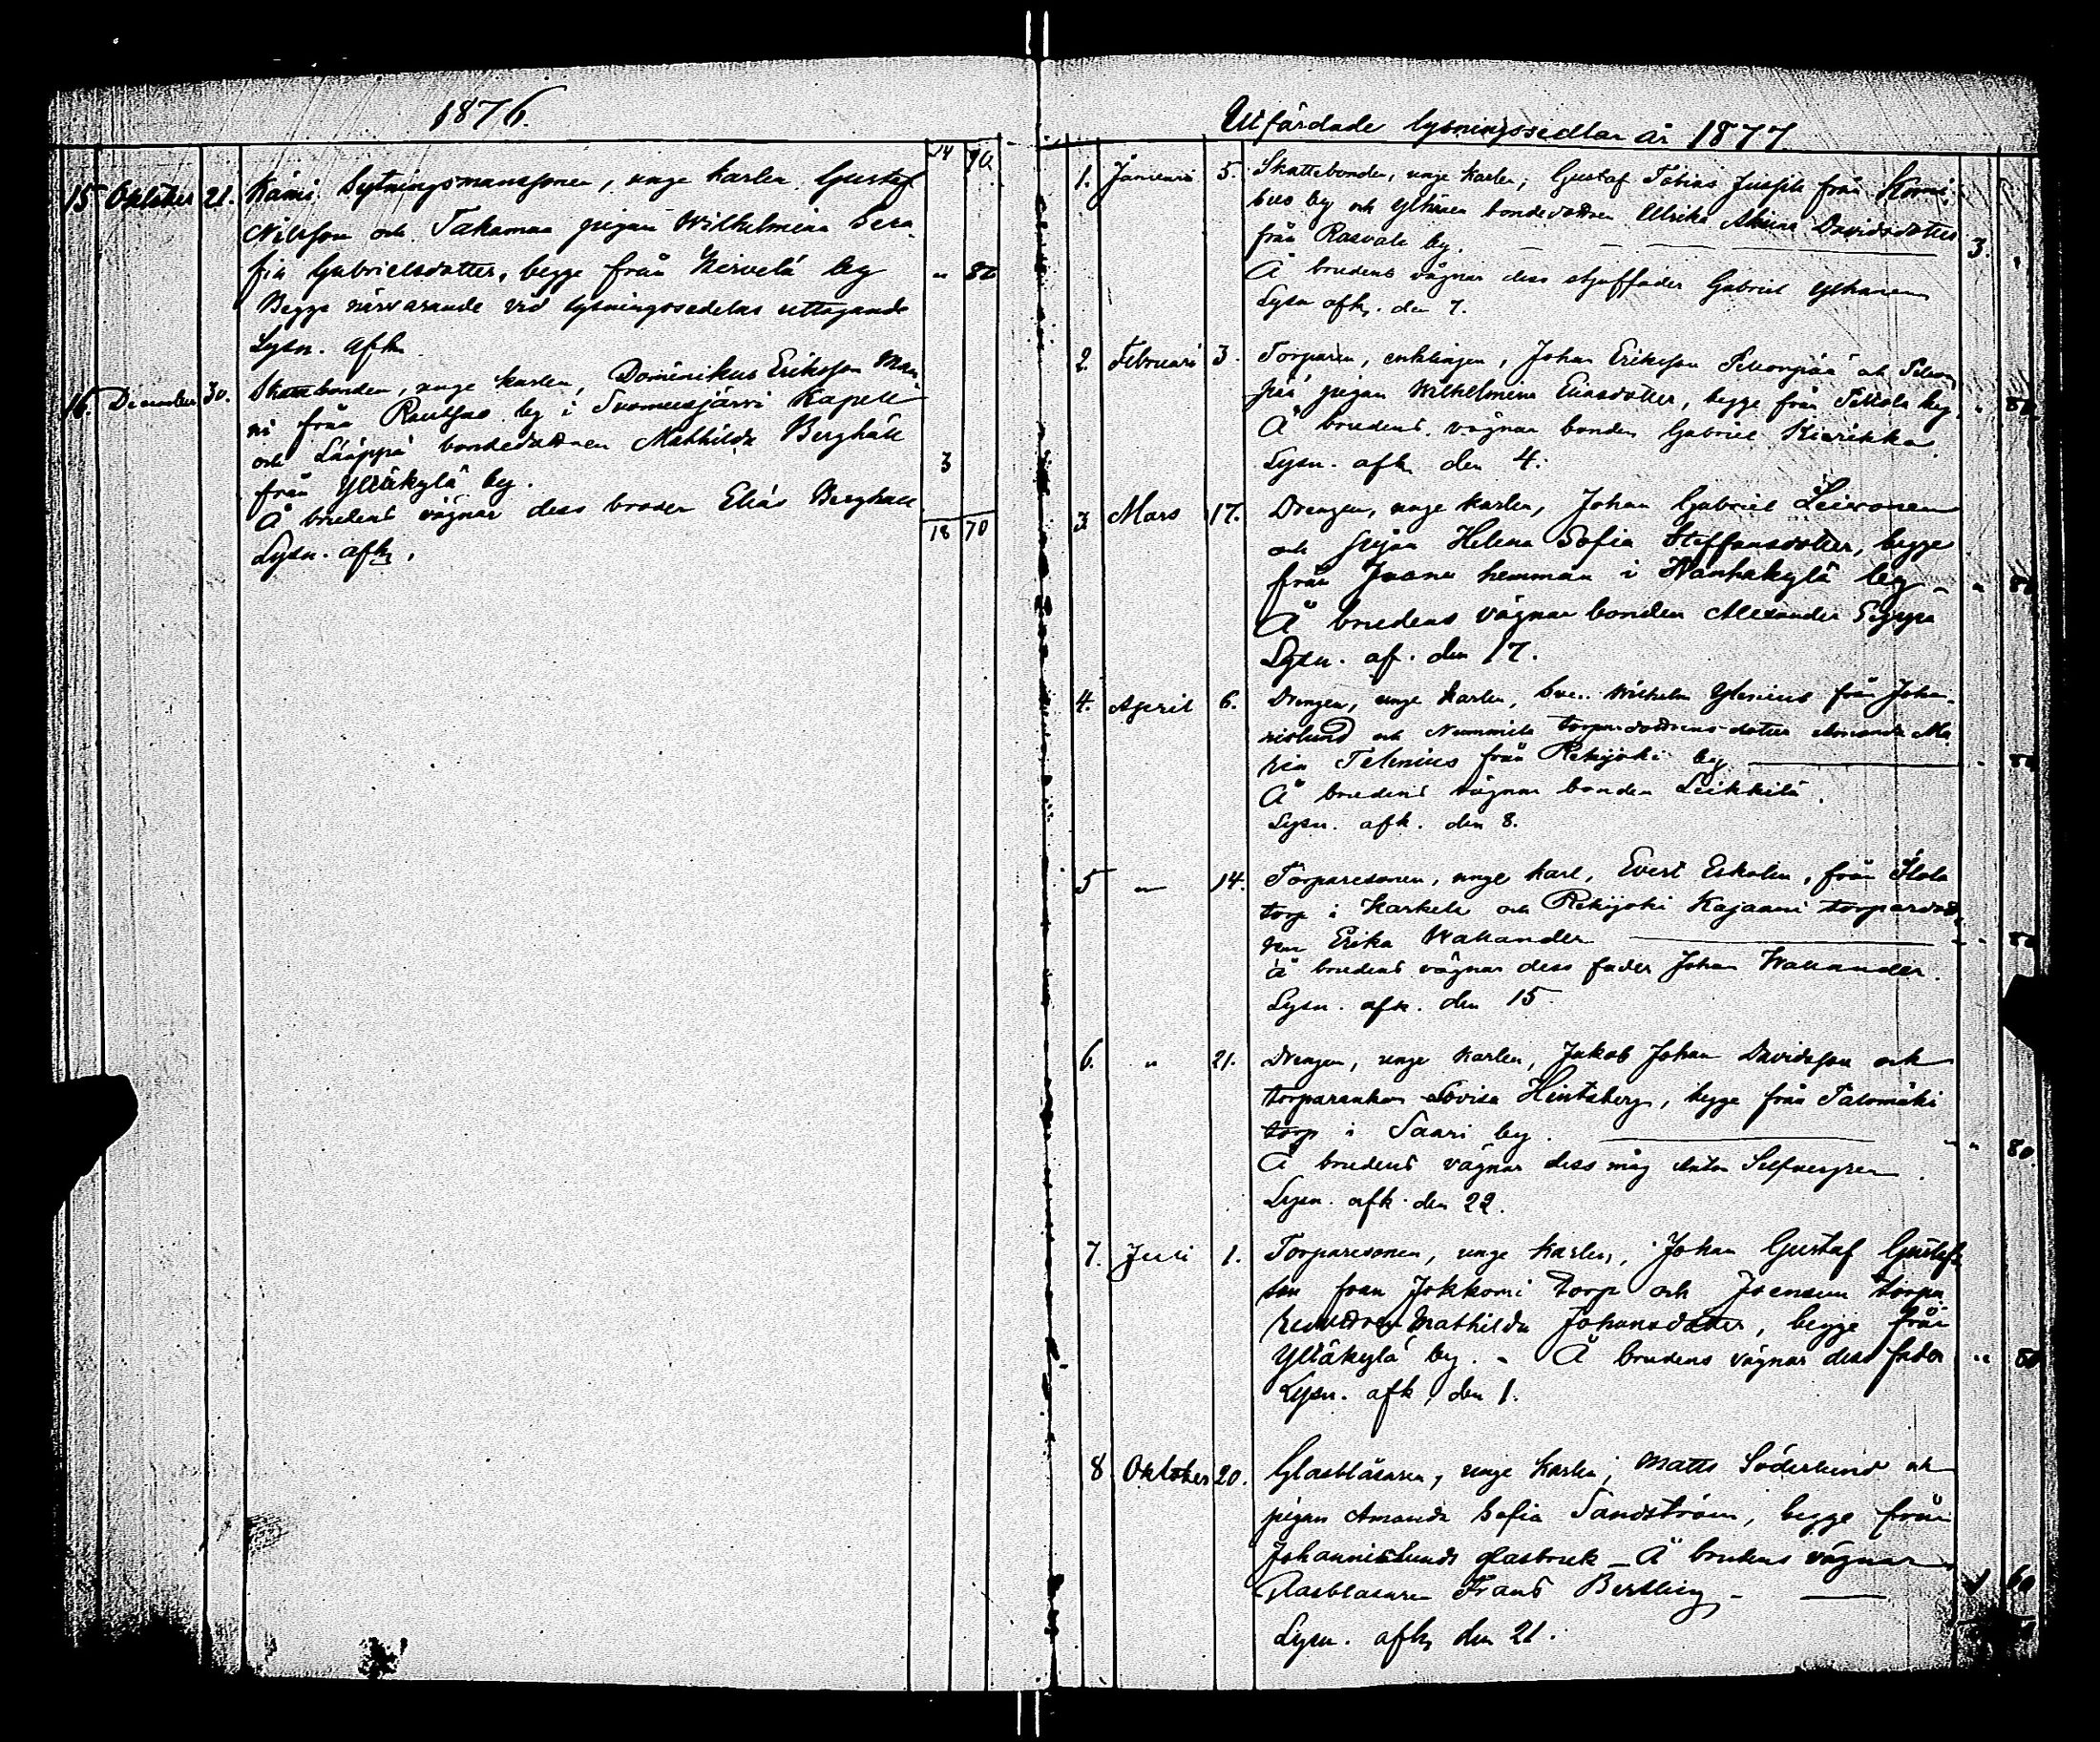 1876.
14 90
15 Oktober 21. Kämi Sytningsmanssonen, unge karlen Gustaf
Nilsson och Takamaa pigan Wilhelmina Sera-
fia Gabrielsdotter, begge från Kirvelä by " 80
Begge närvarande vid lysningssedelns uttagande
Lysn. afk.
16. December 30. Skattebonden, unge karlen, Dominikus Eriksson Man-
ni från Rautsuo by i Suomusjärvi Kapell
och Lääppä bondedottren Mathilda Berghäll
från Yltäkylä by. 3
Å brudens vägnar dess broder Elias Berghäll
Lysn. afk. 18 70
Utfärdade lysningssedlar år 1877
1. Januari 5. Skattebonden, unge karlen, Gustaf Tobias Jussila från
by och Ythinen bondedottren Ulrika Davidsdotter
från Rasvala by. 3.
Å brudens vägnar dess stjuffader Gabriel
Lysn afk. den 7.
2. Februari 3. Torparen, enklingen, Johan Eriksson och
pigan Wilhelmina Eliasdotter, begge från by. " 80
Å brudens vägnar bonden Gabriel Kiarikka
Lysn. afk. den 4.
3. Mars 17. Drengen, unge karlen, Johan Gabriel Leivonen
och pigan Helena Sofia Steffansdotter, begge
från Juanu hemman i Wanhakylä by " 80
Å brudens vägnar bonden Alexander
Lysn. af. den 17.
4. April 6. Drengen, unge karlen, Wilhelm Ylenius från Joha-
nislund och Nummila torparedottrens dotter Amanda Ma-
ria Telenius från Rekijoki by " 80
Å brudens vägnar bonden Leikkilä.
Lysn. afk. den 8.
5 " 14. Torparesonen, unge karl, Evert Eskolin, från Ilola
torp i Karkela och Rekijoki Kajaani torparedott-
ren Erika Wakander " 80
Å brudens vägnar dess fader Johan Wakander.
Lysn. afk. den 15
6. " 21. Drengen, unge karlen, Jakob Johan Davidsson och
torparenkan Lovisa Hintzberg, begge från Talomäki
torp i Saari by. " 80.
Å brudens vägnar dess måg Anton Selfvergren
Lysn. afk. den 22.
7. Juli 1. Torparesonen, unge karlen, Johan Gustaf Gustafs-
son från Jokkomi torp och Joensuu torpa-
redottren Mathilda Johansdotter, begge från
Yltäkylä by. - Å brudens vägnar dess fader " 80
Lysn. afk. den 1.
8 Oktober 20. Glasblåsaren, unge karlen, Matts Söderlund och
pigan Amanda Sofia Sandström, begge från
Johannislunds glasbruk - Å brudens vägnar
Glasblåsaren Frans Bertling - 1 60
Lysn. afk. den 21.